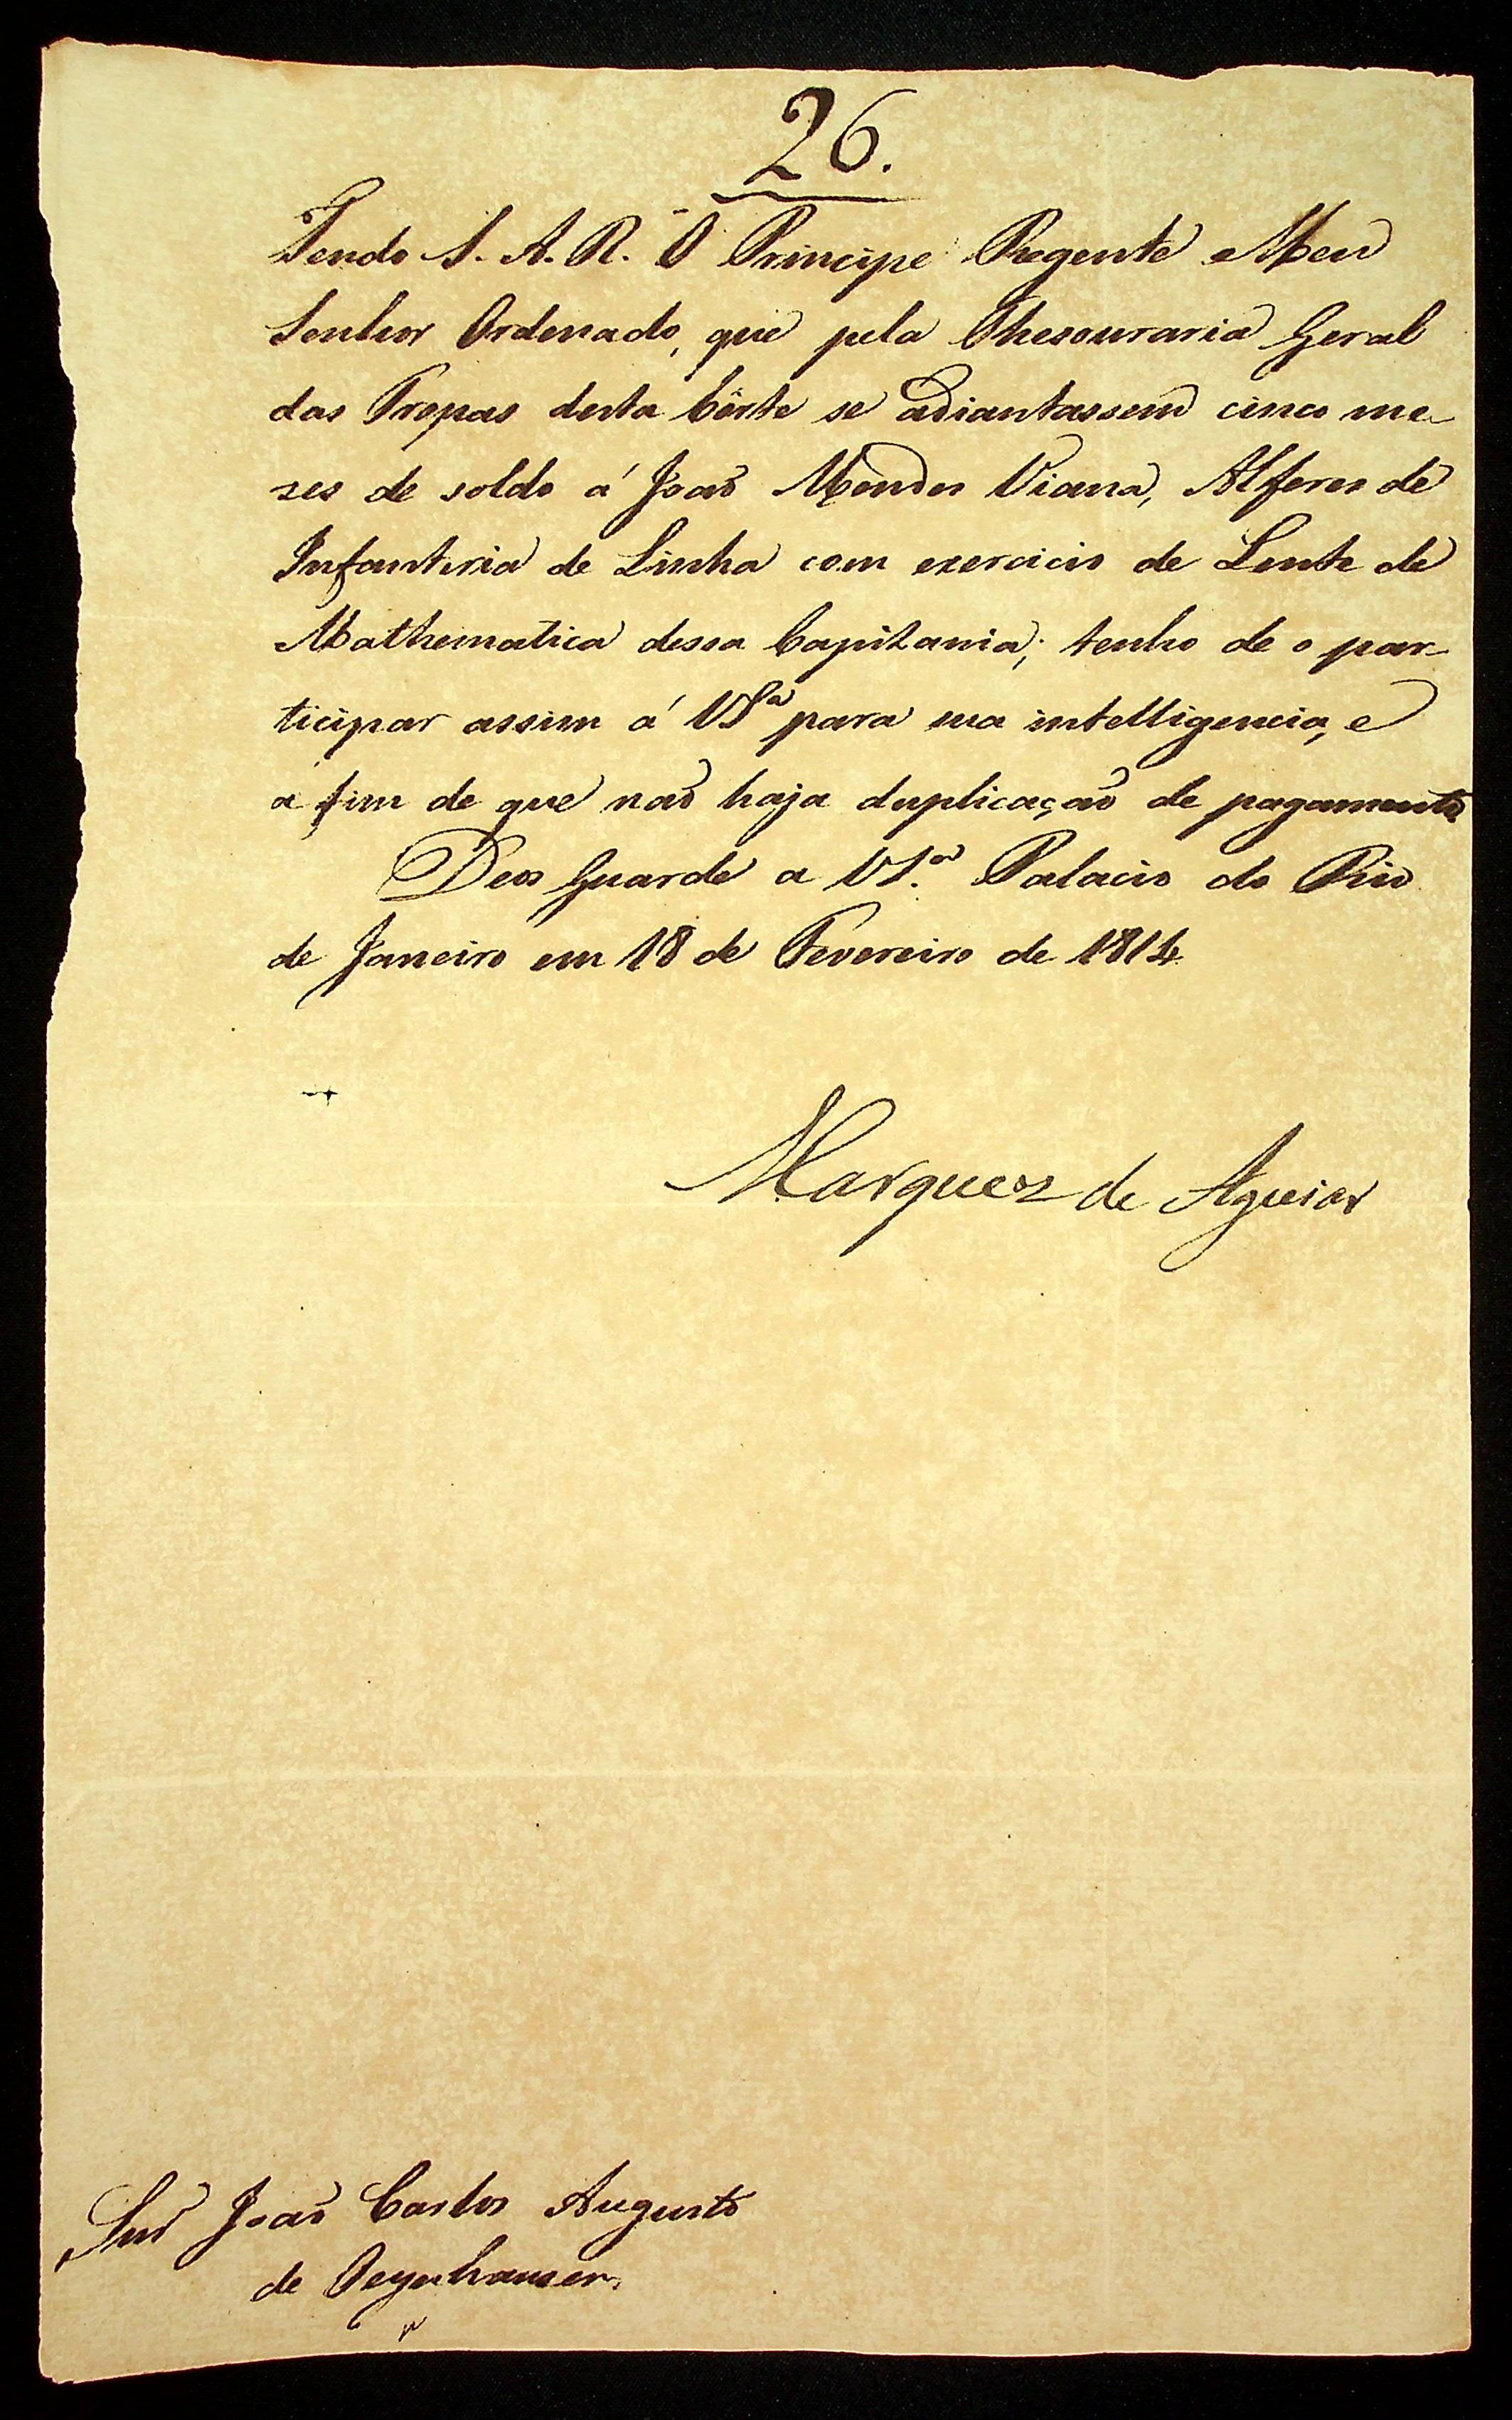 26.
Tendo S. A. R. O Principe Regente Meu
Senhor Ordenado, que pela Thesouraria Geral
das Tropas desta Côrte se adiantassem cinco me-
zes de soldo á João Mendes Viana, Alferes de
Infanteria de Linha com exercicio de Lente de
Mathematica dessa Capitania; tenho de o par-
ticipar assim á VSª para sua intelligencia, e
a fim de que não haja duplicação de pagamento
Deos Guarde a VS.ª Palacio do Rio
de Janeiro em 18 de Fevereiro de 1814
Marquez de Aguiar
Snr João Carlos Augusto
de Oeynhausen.